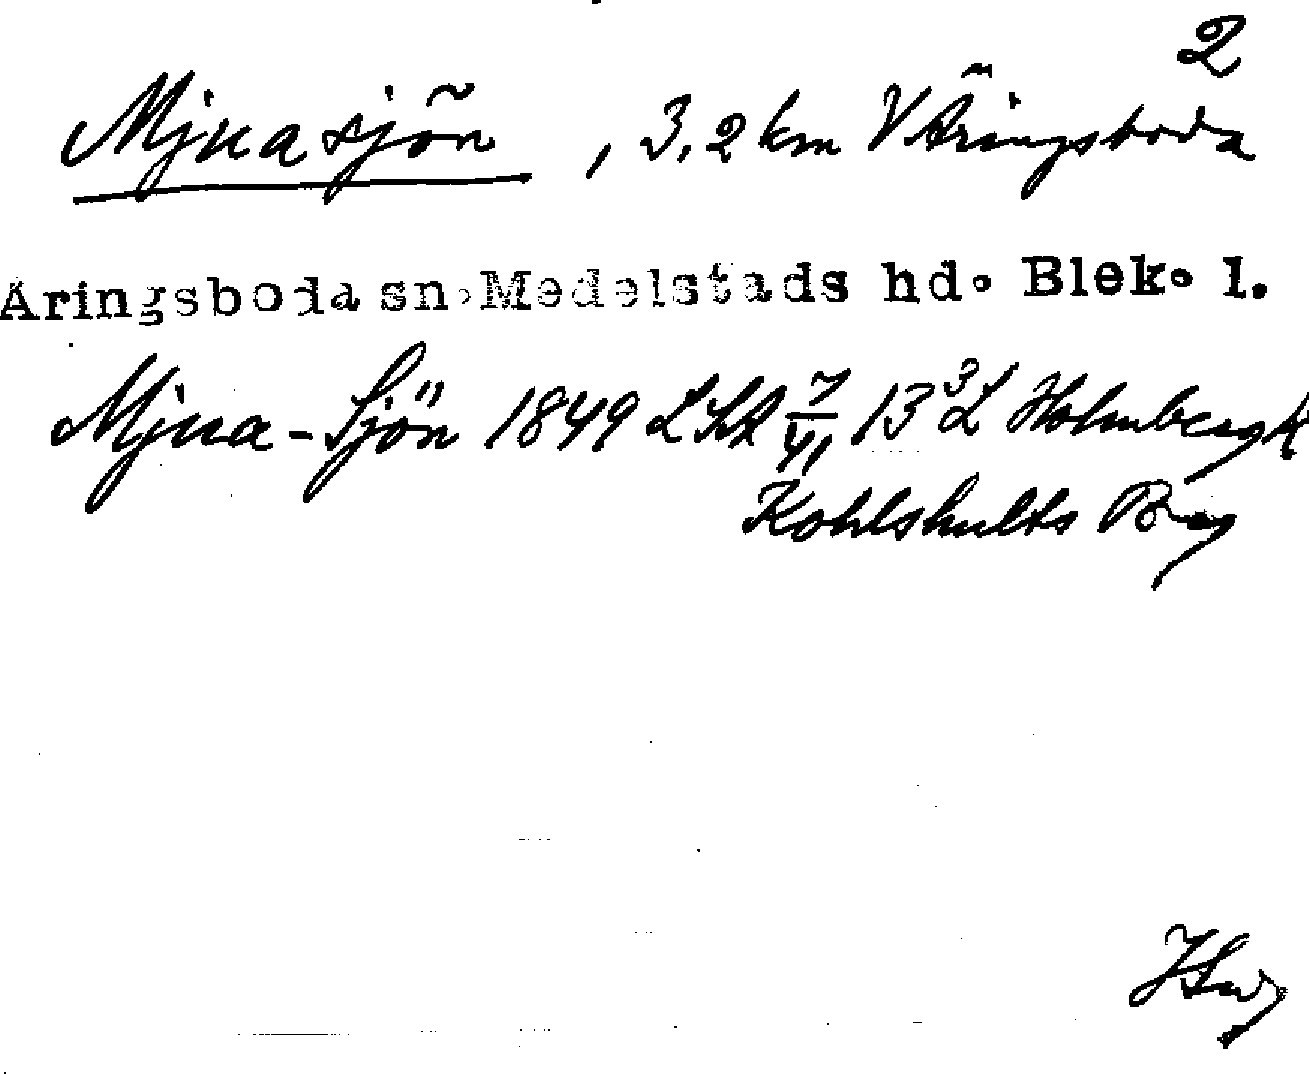 2
Mjuasjön, 3,2 km V Äringsboda
Äringsboda sn. Medelstads hd. Blek. l.
Mjua-Sjön 1849 LSK 7/VI 13³ L Holmberg k
Kohlshults Reg